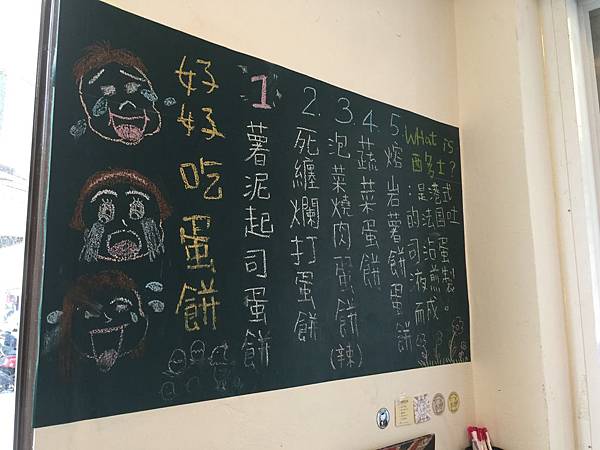 好好吃蛋餅
1 薯泥起司蛋餅
2. 死纏爛打蛋餅
3. 泡菜燒肉蛋餅(辣)
4. 蔬菜蛋餅
5. 熔岩薯餅蛋餅
WHat is
西多士?
:是港式
的法国吐
司沾蛋
液煎製
而成。